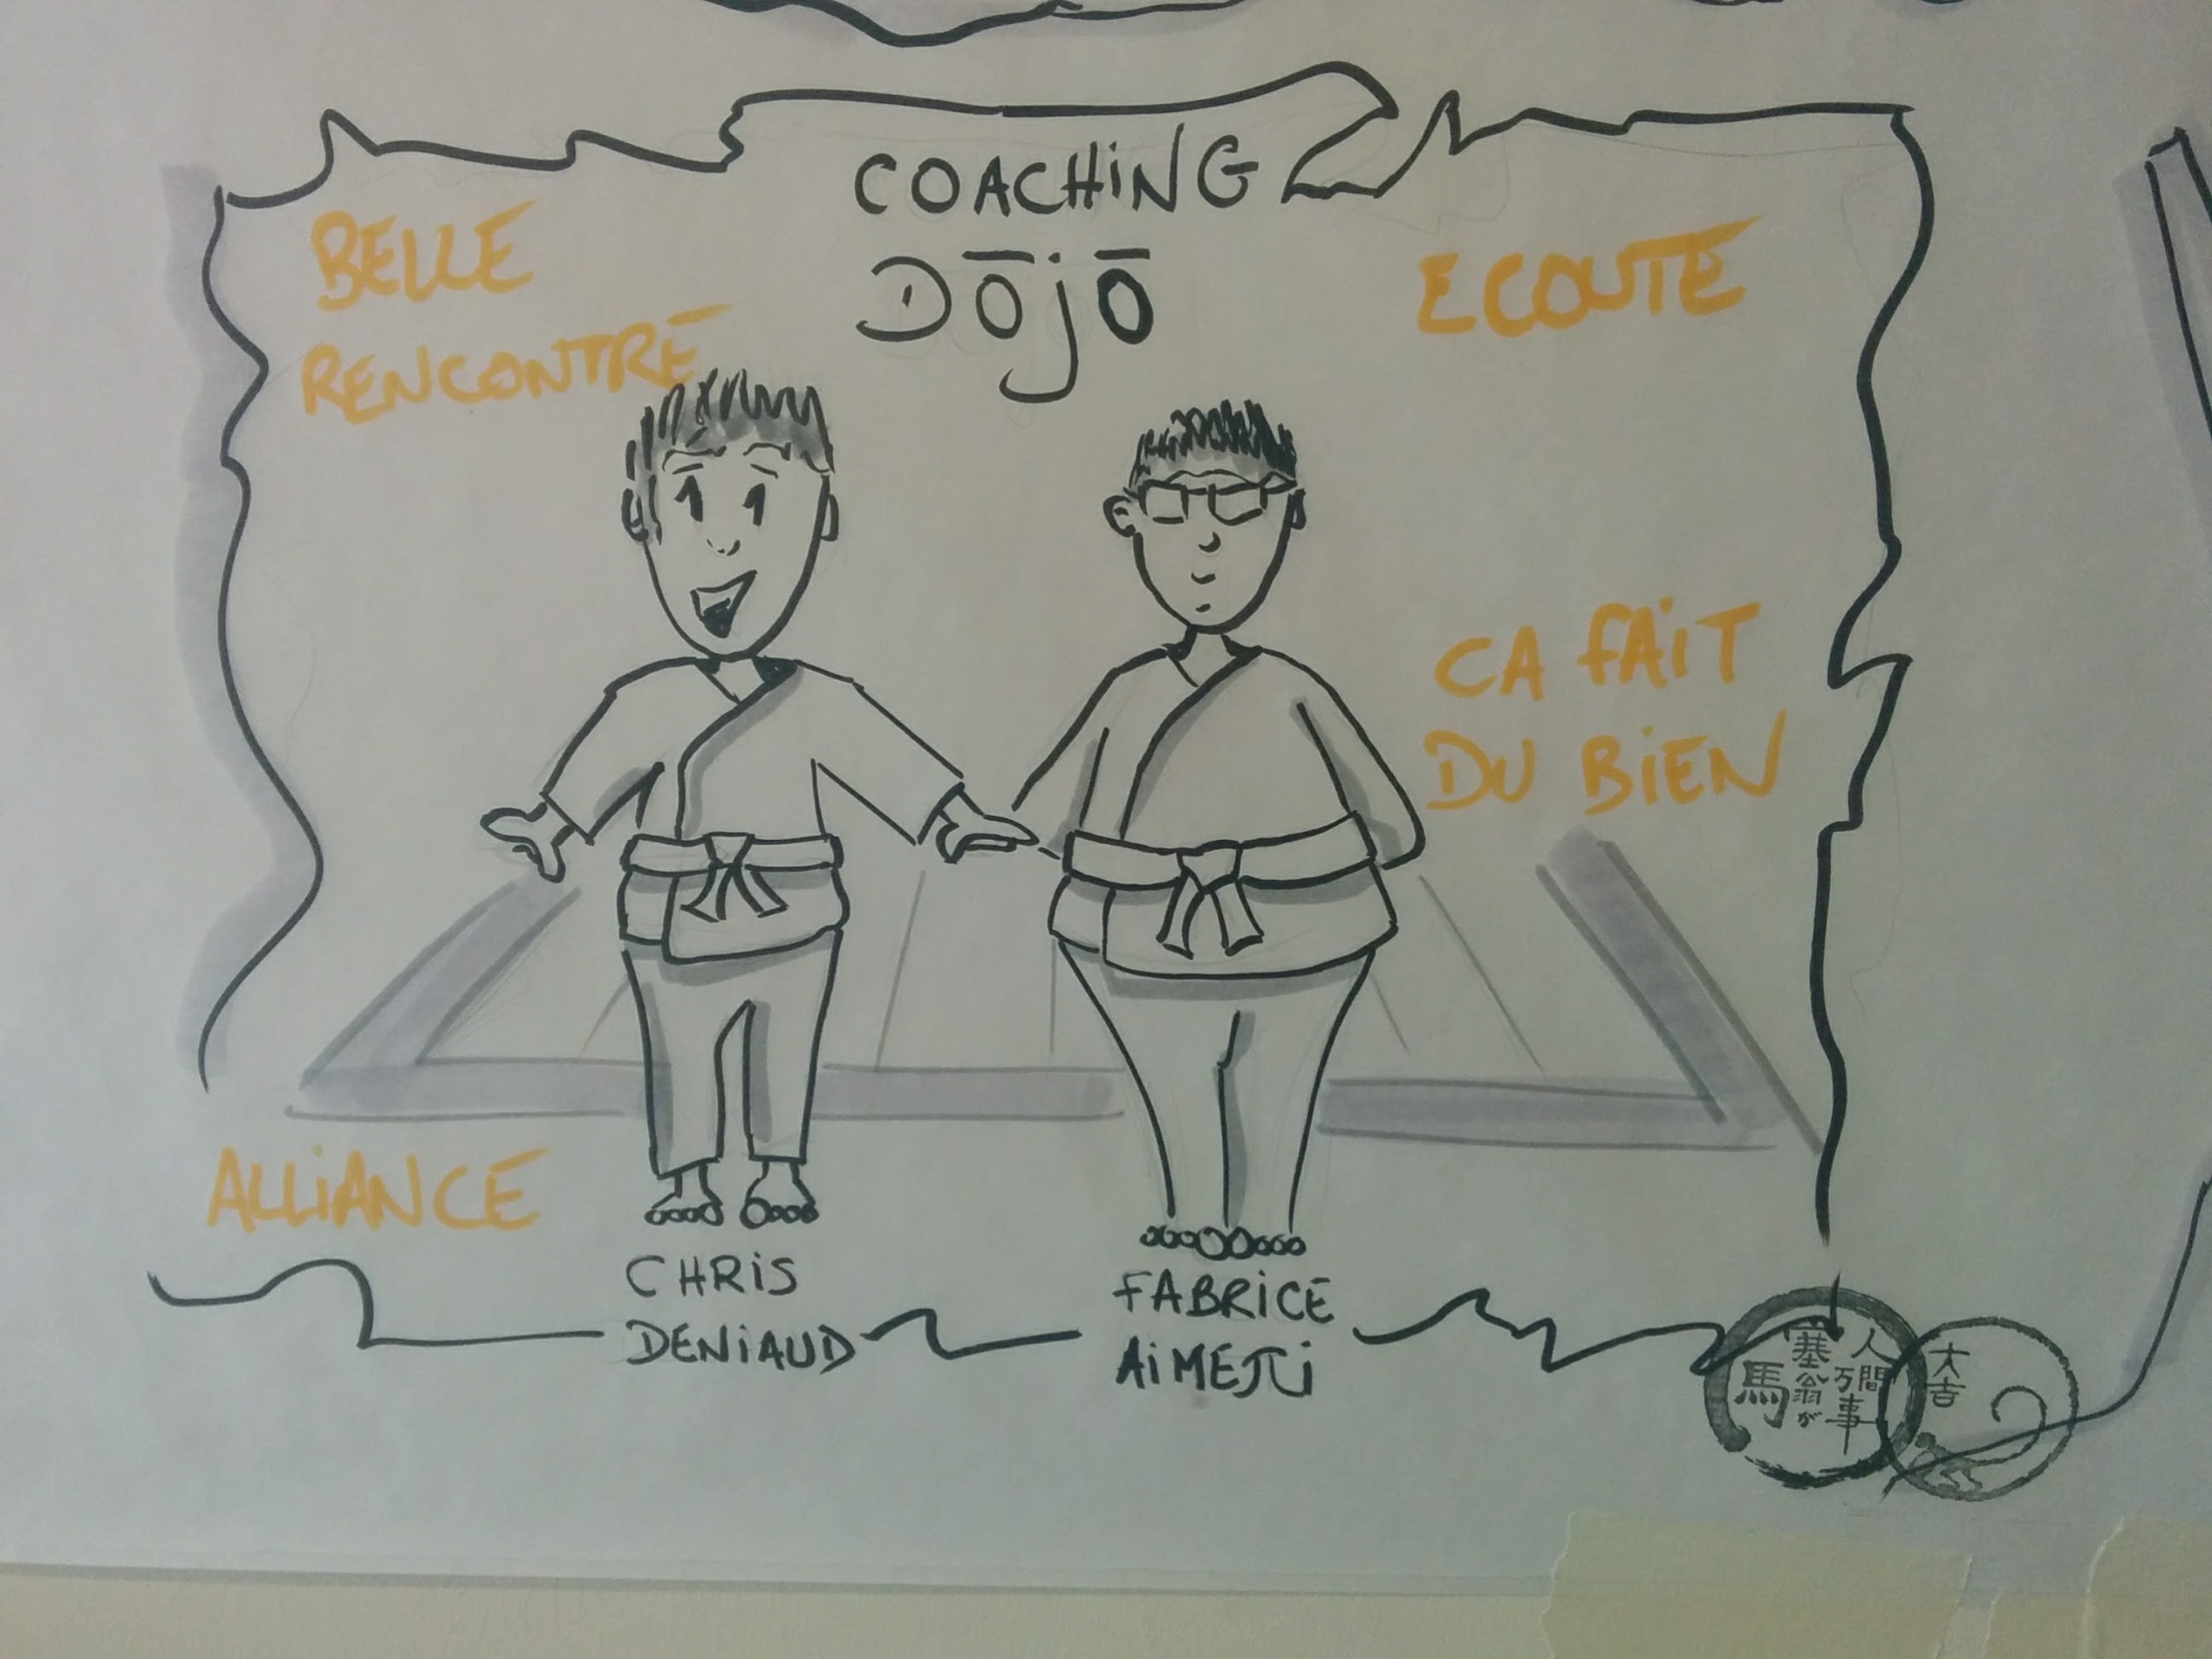 COACHiNG
DōJō
BELLE
RENCONTRE
ECOUTE
CA FAiT
DU BiEN
ALLiANCE
CHRiS
DENiAUD
FABRiCE
AiMEππi
人間
万事
塞翁が
馬
大吉